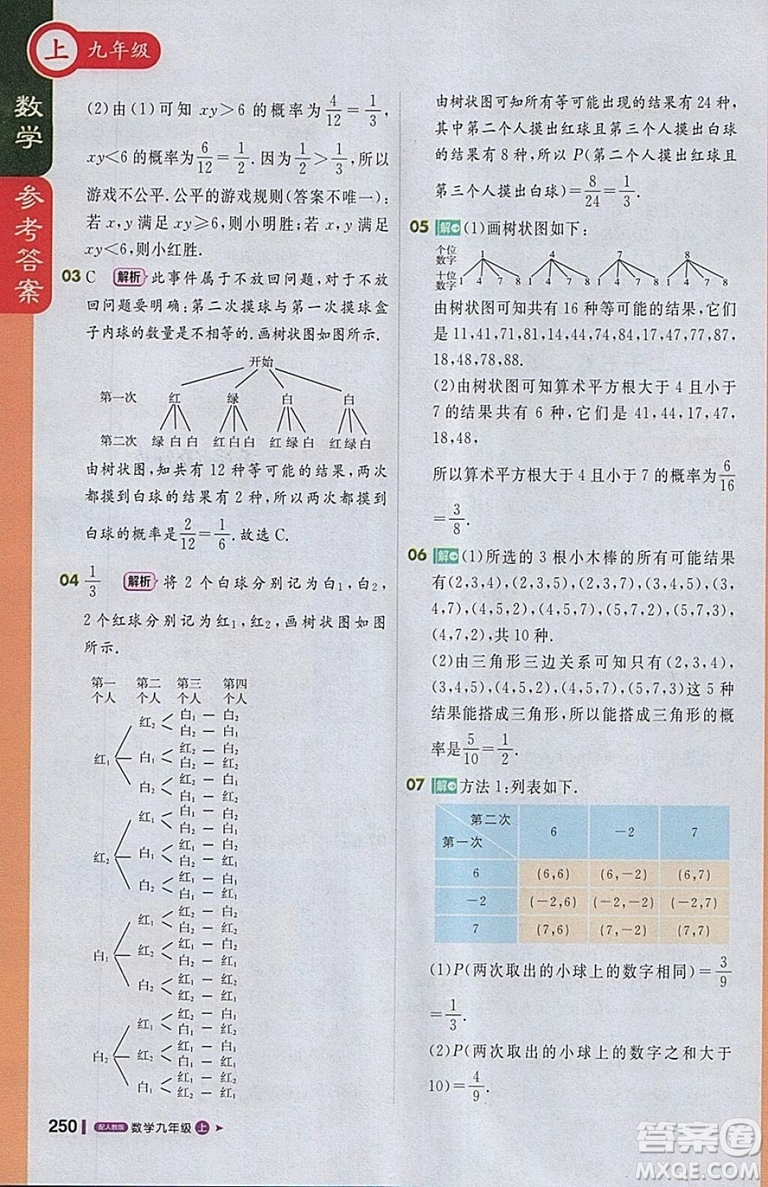 上 九年级
数学
参考答案
(2)由(1)可知 xy>6 的概率为4/12=1/3,
xy<6 的概率为6/12=1/2. 因为1/3<1/2,所以
游戏不公平. 公平的游戏规则(答案不唯一):
若 x,y 满足 xy≥6,则小明胜;若 x,y 满足
xy<6,则小红胜.
03 C 解析 此事件属于不放回问题,对于不放
回问题要明确:第二次摸球与第一次摸球盒
子内球的数量是不相等的. 画树状图如图所示.
开始
第一次 红 绿 白 白
第二次 绿 白 白 红 白 白 红 绿 白 红 绿 白
由树状图,知共有 12 种等可能的结果,两次
都摸到白球的结果有 2 种,所以两次都摸到
白球的概率是2/12=1/6. 故选 C.
04 1/3 解析 将 2 个白球分别记为白1,白2,
2 个红球分别记为红1,红2,画树状图如图
所示.
第一个人 第二个人 第三个人 第四个人
红1 红2 白1 — 白2
白2 — 白1
白1 红2 — 白2
白2 — 红2
白2 红2 — 白1
白1 — 红2
红2 红1 白1 — 白2
白2 — 白1
白1
白2
白1 红1
红2
白2
白2 红1
红2
白1
由树状图可知所有等可能出现的结果有 24 种,
其中第二个人摸出红球且第三个人摸出白球
的结果有 8 种,所以 P(第二个人摸出红球且
第三个人摸出白球)=8/24=1/3.
05 解 (1)画树状图如下:
个位数字 1 4 7 8
十位数字 1 4 7 8 1 4 7 8 1 4 7 8 1 4 7 8
由树状图可知共有 16 种等可能的结果,它们
是 11,41,71,81,14,44,74,84,17,47,77,87,
18,48,78,88.
(2)由树状图可知算术平方根大于 4 且小于
7 的结果共有 6 种,它们是 41,44,17,47,
18,48,
所以算术平方根大于 4 且小于 7 的概率为6/16
=3/8.
06 解 (1)所选的 3 根小木棒的所有可能结果
有(2,3,4),(2,3,5),(2,3,7),(3,4,5),(3,
4,7),(4,5,2),(4,5,7),(5,7,2),(5,7,3),
(4,7,2),共 10 种.
(2)由三角形三边关系可知只有(2,3,4),
(3,4,5),(4,5,2),(4,5,7),(5,7,3)这 5 种
结果能搭成三角形,所以能搭成三角形的概
率是5/10=1/2.
07 解 方法 1:列表如下.
第二次 第一次 6 −2 7
6 (6,6) (6,−2) (6,7)
−2 (−2,6) (−2,−2) (−2,7)
7 (7,6) (7,−2) (7,7)
(1)P(两次取出的小球上的数字相同)=3/9
=1/3.
(2)P(两次取出的小球上的数字之和大于
10)=4/9.
250 配人教版 数学九年级 上
答案圈
MXQE.COM